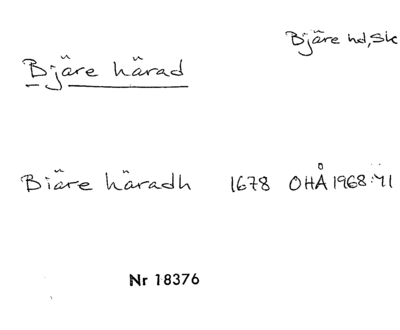 Bjäre hd, Sk
Bjäre härad
Biäre häradh 1678 OHÅ 1968:41
Nr 18376